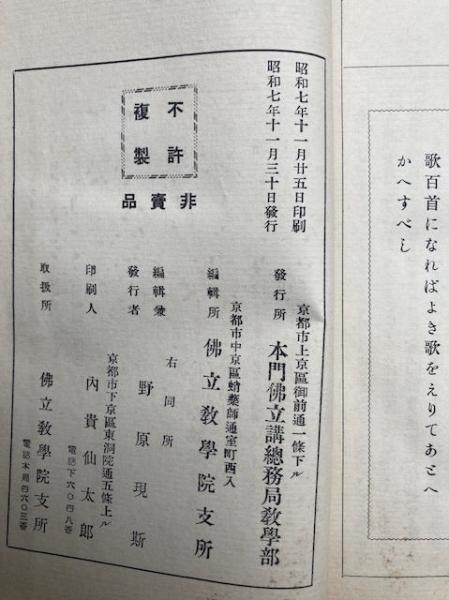 歌百首になればよき歌をえりてあとへ
かへすべし
昭和七年十一月廿五日印刷
昭和七年十一月三十日發行
不許
複製
非賣品
京都市上京區御前通一條下ル
發行所 本門佛立講總務局敎學部
京都市中京區蛸藥師通室町西入
編輯所 佛立敎學院支所
右同所
編輯兼
發行者 野原現斯
京都市下京區東洞院通五條上ル
印刷人 內貴仙太郎
電話下六〇四八番
取扱所 佛立敎學院支所
電話本局四六〇三番